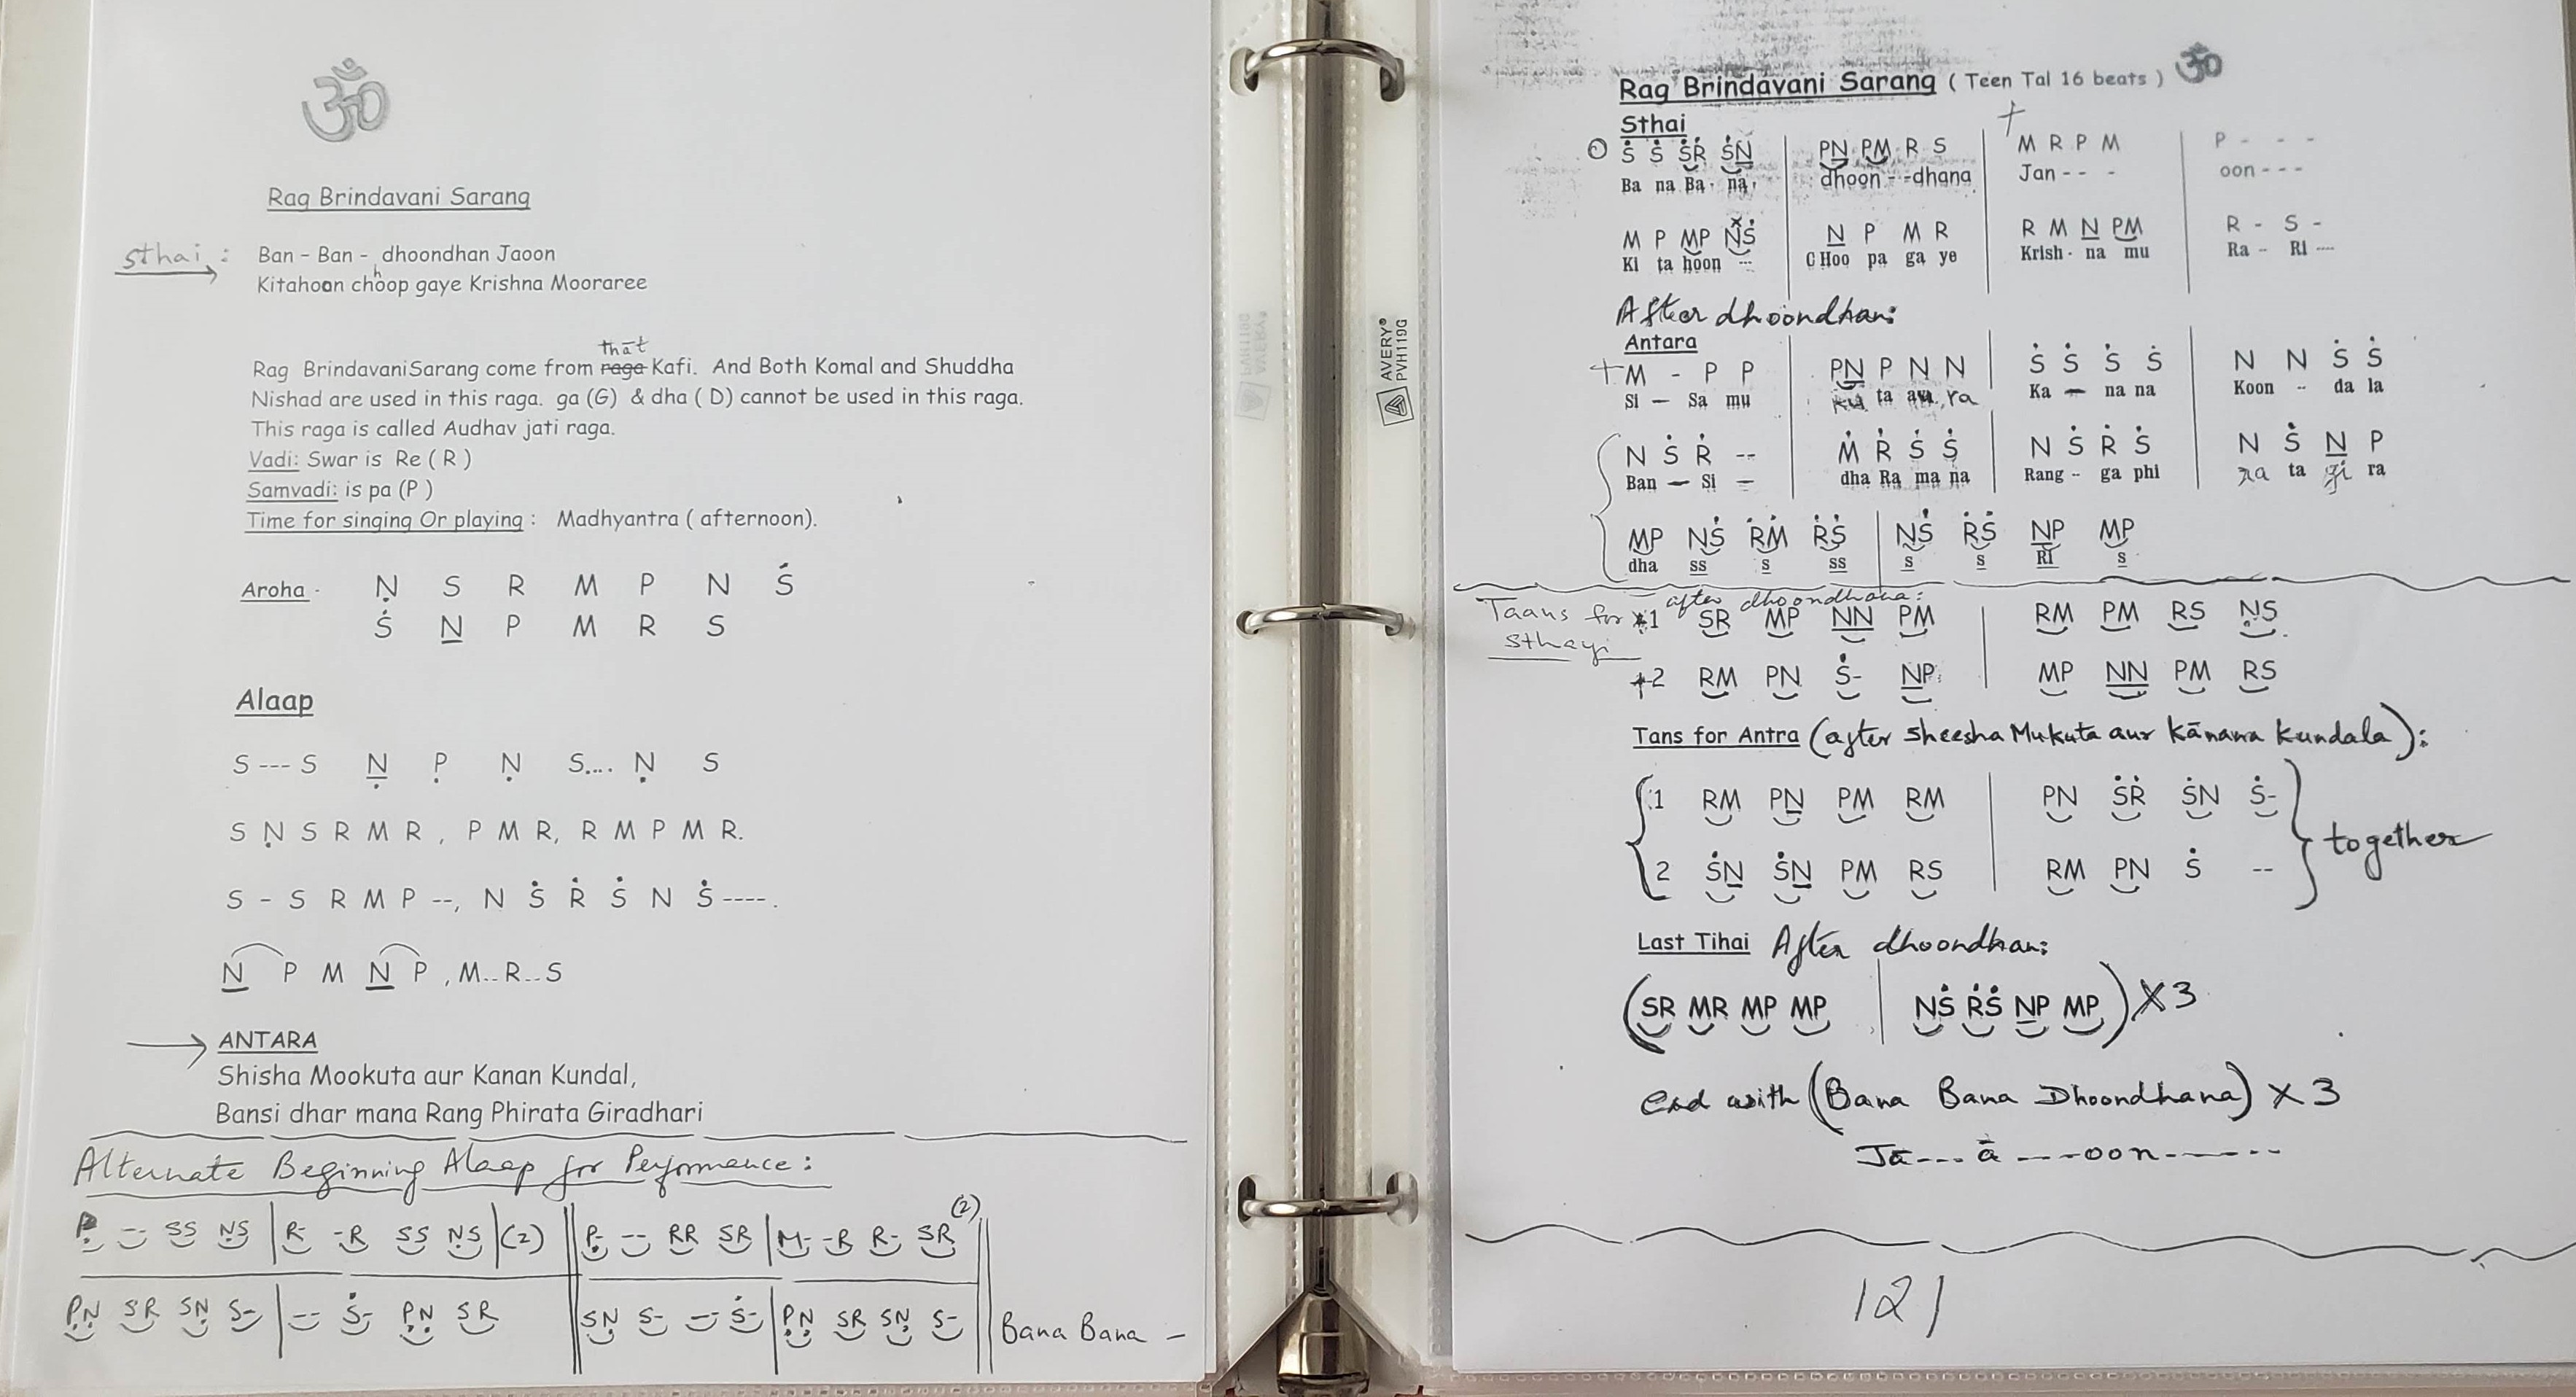 ॐ
Rag Brindavani Sarang
sthai : Ban - Ban - dhoondhan Jaoon
Kitahoon chhoop gaye Krishna Mooraree
thāt
Rag BrindavaniSarang come from raga Kafi. And Both Komal and Shuddha
Nishad are used in this raga. ga (G) & dha ( D) cannot be used in this raga.
This raga is called Audhav jati raga.
Vadi: Swar is Re ( R )
Samvadi: is pa (P )
Time for singing Or playing : Madhyantra ( afternoon).
Aroha - Ṇ S R M P N Ṡ
Ṡ N̲ P M R S
Alaap
S --- S Ṇ̲ P̣ Ṇ S.... Ṇ S
S Ṇ S R M R , P M R, R M P M R.
S - S R M P --, N Ṡ Ṙ Ṡ N Ṡ ----.
N̲ P M N̲ P , M.. R... S
ANTARA
Shisha Mookuta aur Kanan Kundal,
Bansi dhar mana Rang Phirata Giradhari
Alternate Beginning Alaap for Performance :
P̣- -- SS ṆS | R- -R SS ṆS | (2) || P̣- -- RR SR | M- -R R- SR (2) ||
P̣Ṇ SR SṆ S- | -- Ṡ- P̣Ṇ SR || SṆ S- -- Ṡ- | P̣Ṇ SR SṆ S- || Bana Bana -
AVERY®
PVH119G
Rag Brindavani Sarang ( Teen Tal 16 beats ) ॐ
Sthai
O Ṡ Ṡ ṠṘ ṠN̲ | PN̲ PM R S | + M R P M | P - - -
Ba na Ba - na, dhoon - -dhana Jan - - - oon - - -
M P MP NṠ | N̲ P M R | R M N̲ PM | R - S -
Ki ta hoon --- C Hoo pa ga ye Krish - na mu Ra -- Ri ----
After dhoondhan:
Antara
+ M - P P | PN̲ P N N | Ṡ Ṡ Ṡ Ṡ | N N Ṡ Ṡ
Si — Sa mu ku ta au ra Ka — na na Koon -- da la
N Ṡ Ṙ -- | Ṁ Ṙ Ṡ Ṡ | N Ṡ Ṙ Ṡ | N Ṡ N̲ P
Ban — Si — dha Ra ma na Rang -- ga phi ra ta gi ra
MP NṠ ṘṀ ṘṠ | NṠ ṘṠ N̲P MP
dha ss s ss s s RI s
Taans for sthayi after dhoondhana:
*1 SR MP N̲N̲ PM | RM PM RS ṆS
+2 RM PN Ṡ- N̲P | MP N̲N̲ PM RS
Tans for Antra (after sheesha Mukuta aur kānana kundala):
1 RM PN̲ PM RM | PN ṠṘ ṠN Ṡ-
2 ṠN̲ ṠN̲ PM RS | RM PN Ṡ --
together
Last Tihai After dhoondhan:
(SR MR MP MP | NṠ ṘṠ N̲P MP) X3
end with (Bana Bana Dhoondhana) X 3
Jā---- ā ----oon------
121